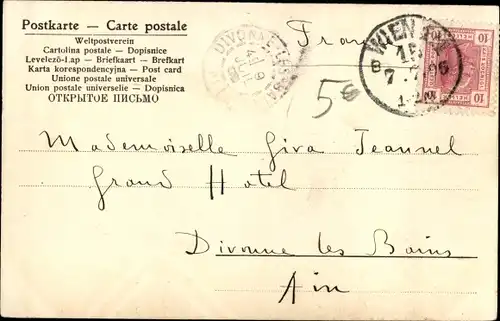 Postkarte — Carte postale
Weltpostverein
Cartolina postale – Dopisnice
Levelező-Lap — Briefkaart — Brefkort
Karta korespondencyjna — Post card
Unione postale universale
Union postale universelle — Dopisnica
ОТКРЫТОЕ ПИСЬМО
DIVONNE-LES-B
WIEN
7. 7. 06
10 10
5€
Mademoiselle Giva Jeannel
Grand Hotel
Divonne les Bains
Ain